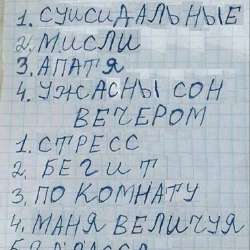 1. СУИСИДАЛЬНЫЕ
2. МИСЛИ
3. АПАТЯ
4. УЖАСНЫ СОН
ВЕЧЕРОМ
1. СТРЕСС
2. БЕГИТ
3. ПО КОМНАТУ
4. МАНЯ ВЕЛИЧУЯ